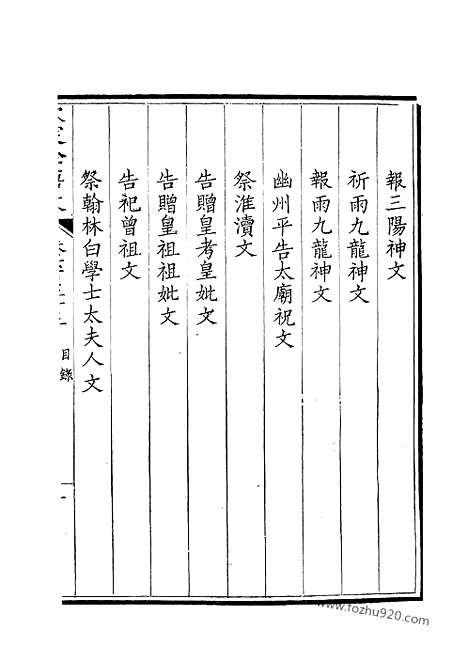 報三陽神文
祈雨九龍神文
報雨九龍神文
幽州平告太廟祝文
祭淮瀆文
告贈皇考皇妣文
告贈皇祖祖妣文
告祀曾祖文
祭翰林白學士太夫人文
目錄
www.fozhu920.com